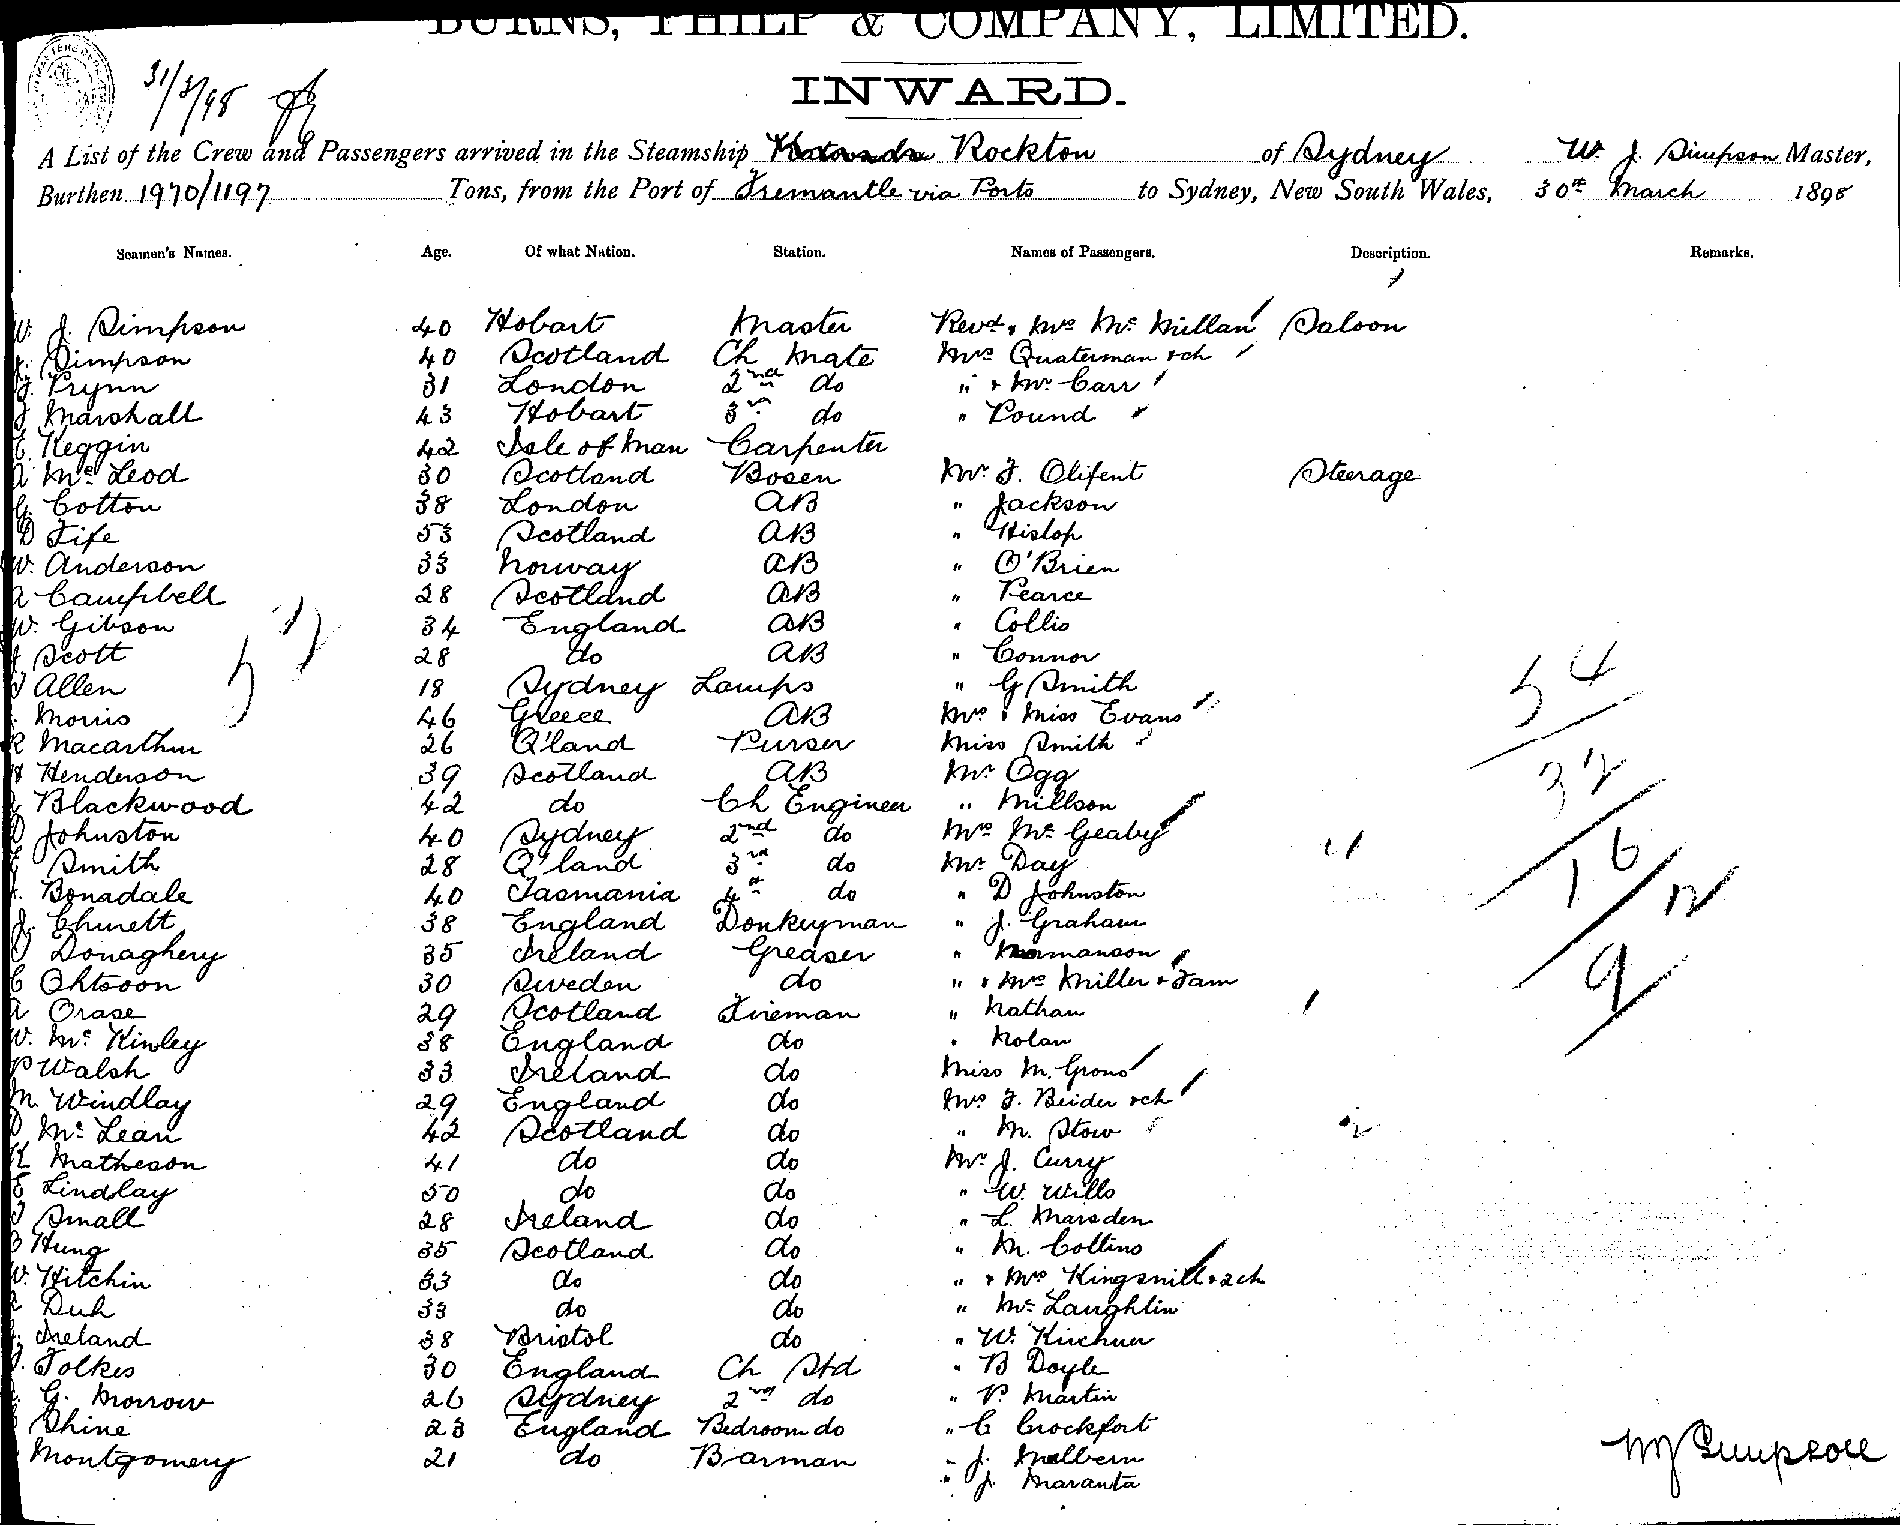 BURNS, PHILP & COMPANY, LIMITED.
31/3/98
INWARD.
A List of the Crew and Passengers arrived in the Steamship Rockton of Sydney W. J. Simpson Master,
Burthen 1970/1197 Tons, from the Port of Fremantle via Ports to Sydney, New South Wales, 30th March 1898
Seamen's Names. Age. Of what Nation. Station. Names of Passengers. Description. Remarks.
W. J. Simpson 40 Hobart Master Revd & Mrs McMillan Saloon
Simpson 40 Scotland Ch Mate Mrs Quaterman & ch
Prynn 31 London 2nd do " & Mr Carr
J Marshall 43 Hobart 3rd do " Pound
Keggin 42 Isle of Man Carpenter
A McLeod 30 Scotland Bosen Mr F. Olifent Steerage
G. Cotton 38 London AB " Jackson
D Fife 53 Scotland AB " Hislop
W. Anderson 33 Norway AB " O'Brien
A Campbell 28 Scotland AB " Pearce
W. Gibson 34 England AB " Collis
Scott 28 do AB " Connor
Allen 18 Sydney Lamps " G Smith
Morris 46 Greece AB Mrs & Miss Evans
R Macarthur 26 Q'land Purser Miss Smith
H Henderson 39 Scotland AB Mr Ogg
Blackwood 42 do Ch Engineer " Millson
D Johnston 40 Sydney 2nd do Mrs McGeaby
Smith 28 Q'land 3rd do Mr Day
Bonsdale 40 Tasmania 4th do " D Johnston
J. 38 England Donkeyman " J. Graham
Donaghery 35 Ireland Greaser "
C Ohtsoon 30 Sweden do " & Mrs Miller & Fam
A Orase 29 Scotland Fireman " Nathan
W. McKinley 38 England do " Nolan
P Walsh 33 Ireland do Miss M. Grono
M. Windlay 29 England do Mrs F. Beider & ch
D McLean 42 Scotland do " M. Stow
K Matheson 41 do do Mr J. Curry
E Lindlay 50 do do " W. Wills
Small 28 Ireland do " L. Marsden
B Hung 35 Scotland do " M. Collins
W. Hitchin 33 do do " & Mrs Kingsmill & 2 ch
Duh 33 do do " McLaughlin
Ireland 38 Bristol do " W. Kirchner
Folkes 30 England Ch Std " B Doyle
G. Morrow 26 Sydney 2nd do " P. Martin
Shine 23 England Bedroom do " C Crockfort
Montgomery 21 do Barman " J. Malbern
" J. Maranta
54
32
16
12
9
WJ Simpson